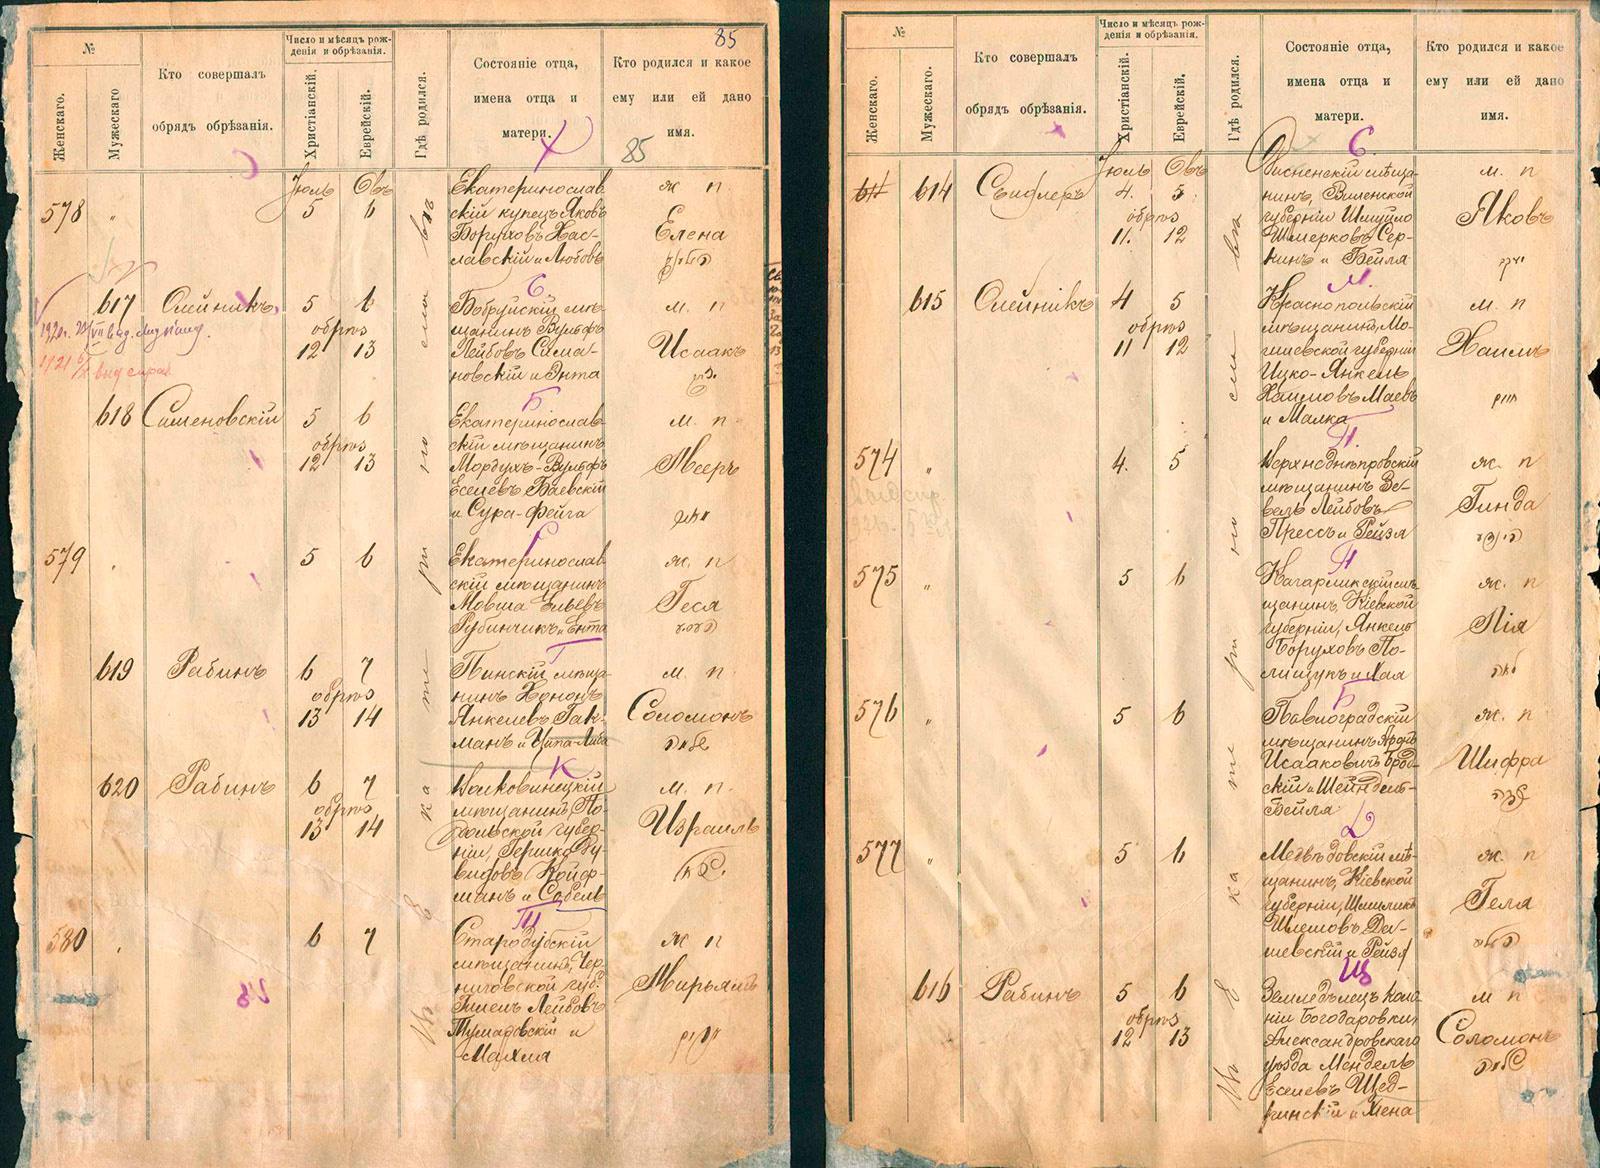 85
№
Женскаго.
Мужескаго
Кто совершалъ
обрядъ обрѣзанія.
Число и мѣсяцъ рож-
денія и обрѣзанія.
Христіанскій.
Еврейскій.
Гдѣ родился.
Состояніе отца,
имена отца и
матери.
Кто родился и какое
ему или ей дано
имя.
Х
85
Въ Екатеринославѣ
578
"
Іюль
5
Овъ
6
Екатеринослав
скій купецъ Яковъ
Боруховъ Хас-
лавскій и Любовь
ж п
Елена
С
617
Олейникъ
5
6
обрѣз
12
13
Бобруйскій мѣ-
щанинъ Вульфъ
Лейбовъ Сима-
новскій и Энта
м. п.
Исаакъ
Б
618
Сименовскій
5
6
обрѣз
12
13
Екатеринослав-
скій мѣщанинъ
Мордухъ-Вульфъ
Еселевъ Баевскій
и Сура-Фейга
м. п.
Мееръ
579
5
6
Екатеринослав
скій мѣщанинъ
Мовша Ельевъ
Рубинчикъ и Ента
ж. п
Геся
Г
619
Рабинъ
6
7
обрѣз
13
14
Пинскій мѣща-
нинъ Хононъ
Янкелевъ Гак-
манъ и Ципа-Либа
м. п.
Соломонъ
К
620
Рабинъ
6
7
обрѣз
13
14
Волковинецкій
мѣщанинъ, По-
дольской губер-
ніи, Гершко Ду-
видовъ Койф-
манъ и Собель
м. п.
Израиль
580
6
7
Стародубскій
мѣщанинъ, Чер
ниговской губ.
Гилель Лейбовъ
Тумаровскій и
Махля
ж п
Марьямъ
№
Женскаго.
Мужескаго.
Кто совершалъ
обрядъ обрѣзанія.
Число и мѣсяцъ рож-
денія и обрѣзанія.
Христіанскій.
Еврейскій.
Гдѣ родился.
Состояніе отца,
имена отца и
матери.
Кто родился и какое
ему или ей дано
имя.
С.
Въ Екатеринославѣ
614
Съиблеръ
Іюль
4.
Овъ
5
обрѣз
11.
12
Дисненскій мѣща-
нинъ, Виленской
губерніи Шмуйло
Шмерковъ Сер-
кинъ и Бейля
м. п
Яковъ
М.
615
Олейникъ
4
5
обрѣз
11
12
Краснопольскій
мѣщанинъ, Мо-
гилевской губерніи
Ицко-Янкель
Хаимовъ Маевъ
и Малка
м. п
Хаимъ
П.
574
"
4.
5
Верхнеднѣпровскій
мѣщанинъ Зе-
вель Лейбовъ
Прессъ и Рейзя
ж. п
Гинда
П
575
"
5
6
Кагарликскій мѣ-
щанинъ, Кіевской
губерніи, Янкель
Боруховъ По-
лищукъ и Хая
ж. п
Лія
Б
576
"
5
6
Павлоградскій
мѣщанинъ Аронъ
Исааковичъ Брод-
скій и Шейндель-
Бейла
ж. п
Шифра
Д
577
"
5
6
Медвѣдовскій мѣ-
щанинъ, Кіевской
губерніи, Шмиликъ
Шлемовъ Да-
шевскій и Рейзя
ж. п
Геля
Щ
616
Рабинъ
5
6
обрѣз
12
13
Земледѣлецъ коло-
ніи Богодаровки,
Александровскаго
уѣзда Мендель
Еселевъ Щед-
ринскій и Хена
м п
Соломонъ
שלמה